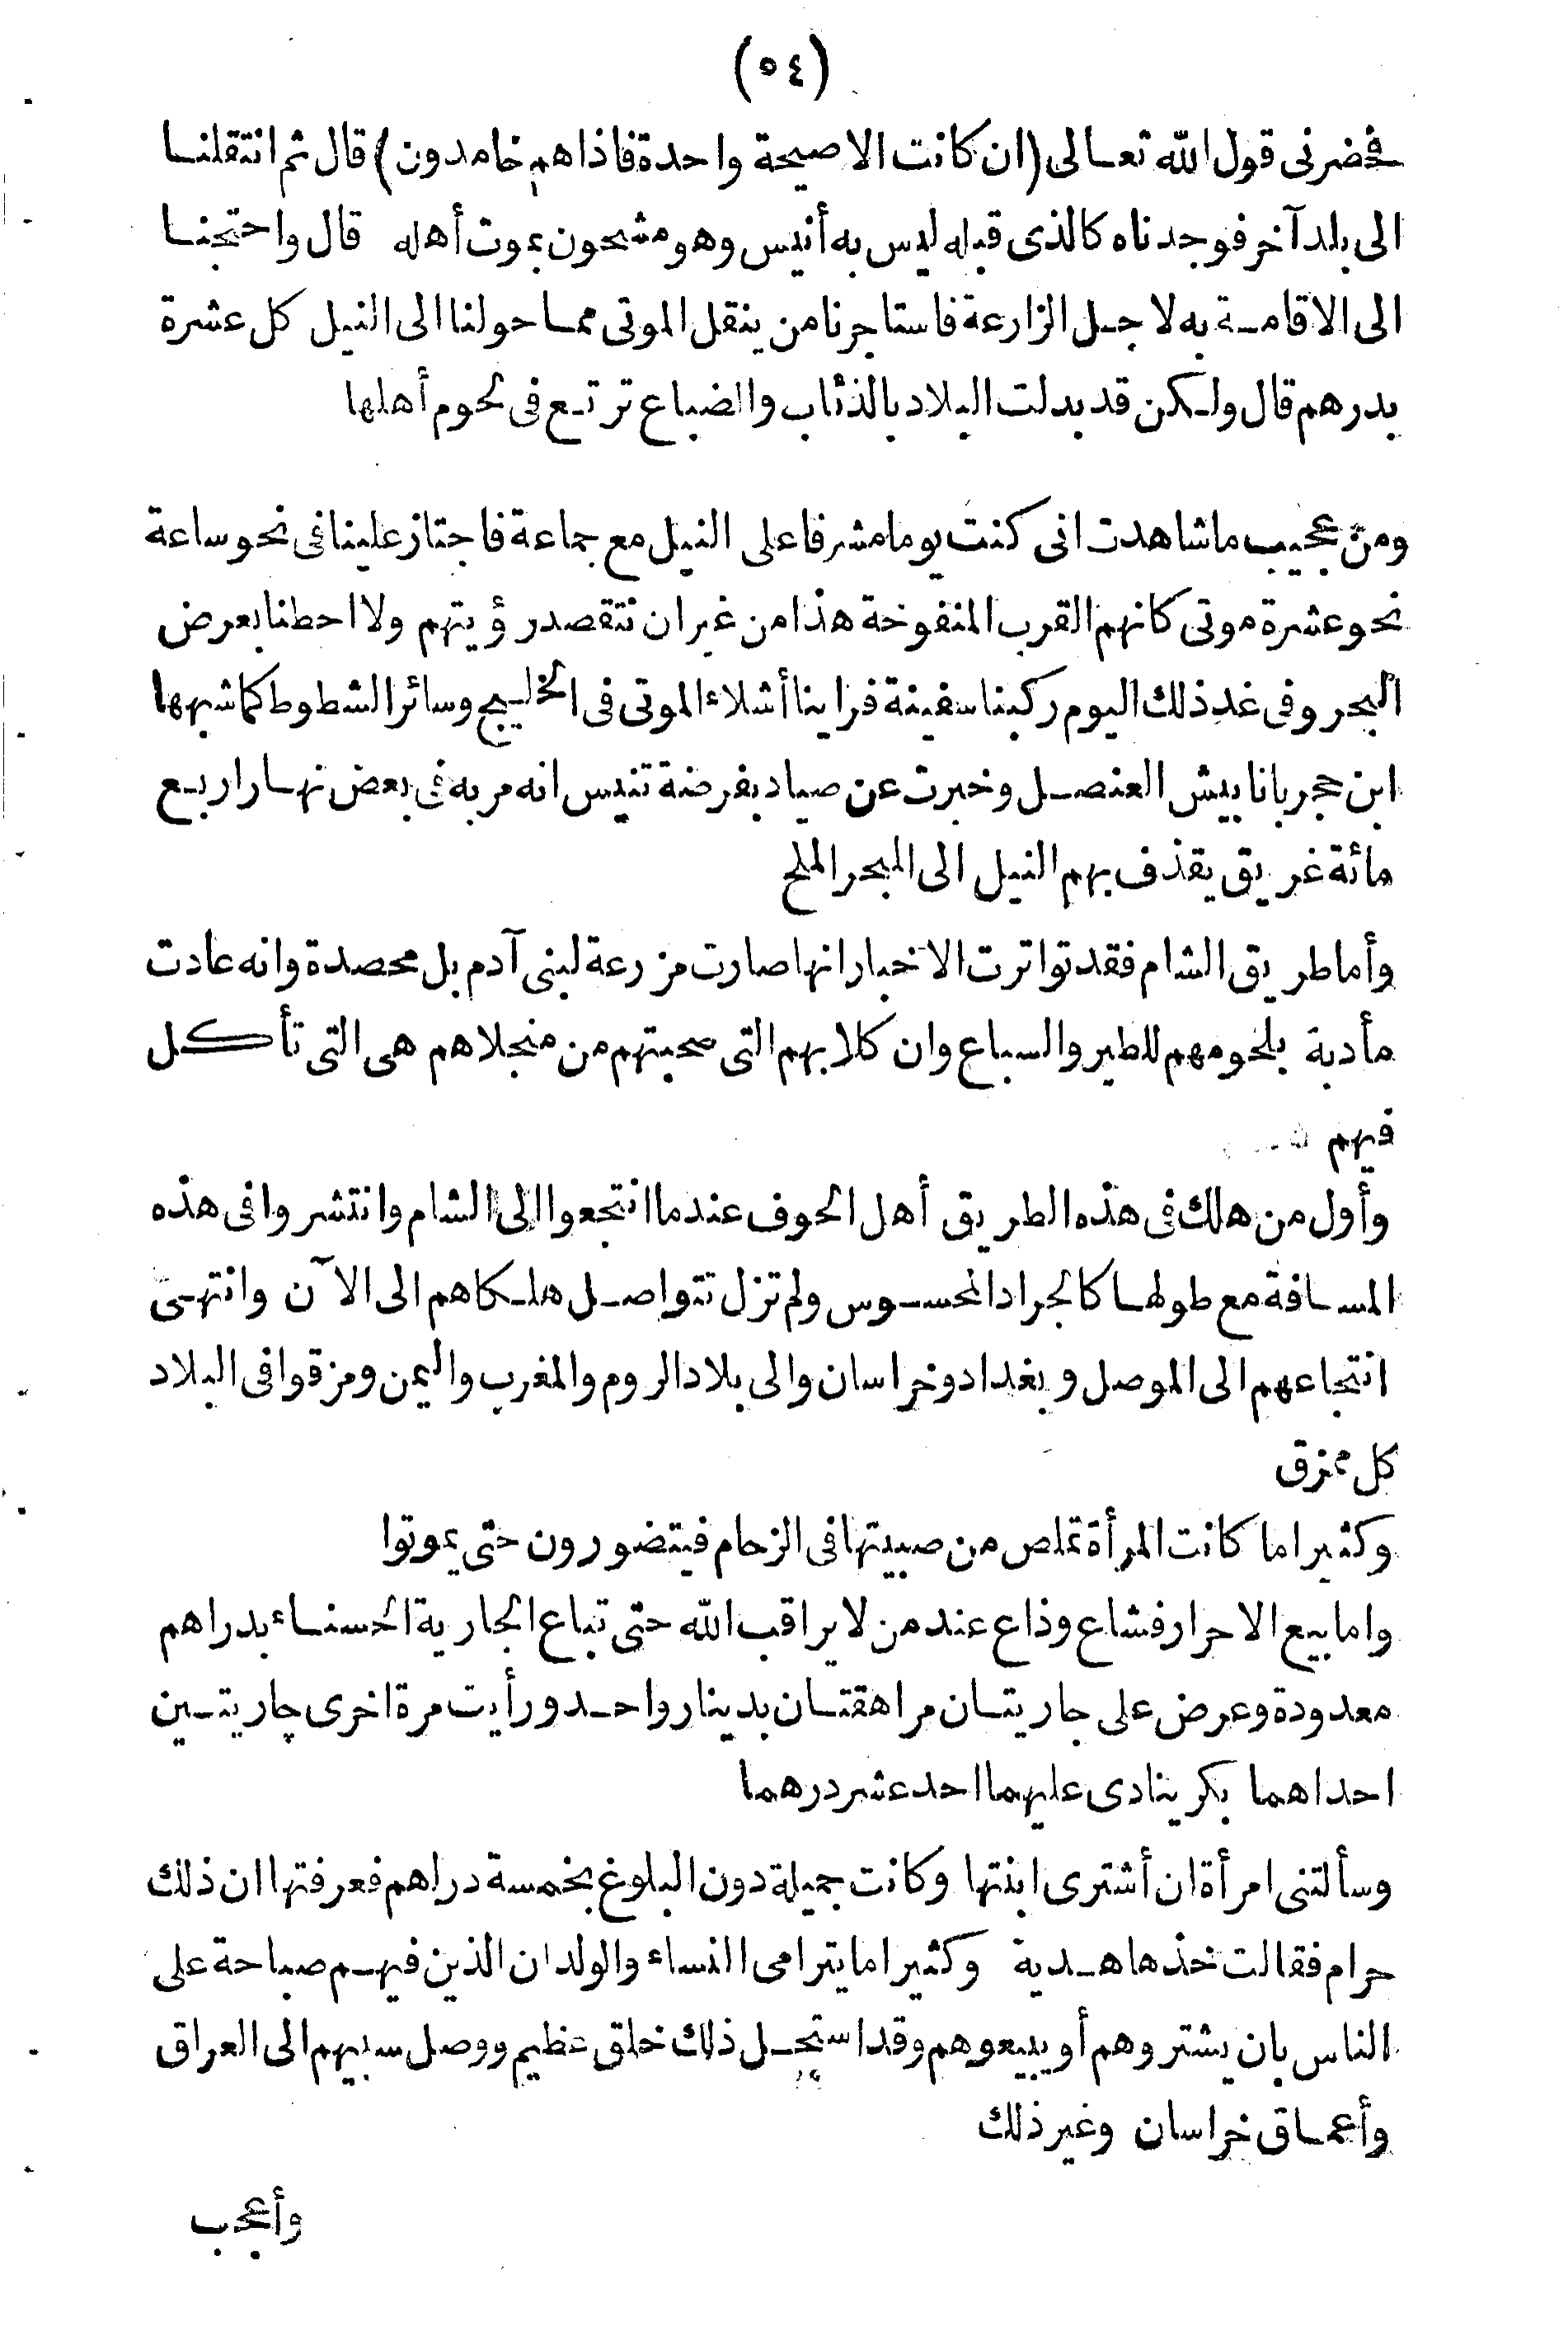 (٥٤)
فحضرنى قول الله تعالى (ان كانت الا صيحة واحدة فاذا هم خامدون) قال ثم انتقلنا
الى بلد آخر فوجدناه كالذى قبله ليس به أنيس وهو مشحون بموت أهله قال واحتجنا
الى الاقامة به لاجل الزارعة فاستاجرنا من ينقل الموتى مما حولنا الى النيل كل عشرة
بدرهم قال ولكن قد بدلت البلاد بالذئاب والضباع ترتع فى لحوم أهلها
ومن عجيب ما شاهدت انى كنت يوما مشرفا على النيل مع جماعة فاجتاز علينا فى نحو ساعة
نحو عشرة موتى كانهم القرب المنفوخة هذا من غير ان نتقصد رؤيتهم ولا احطنا بعرض
البحر وفى غد ذلك اليوم ركبنا سفينة فراينا أشلاء الموتى فى الخليج وسائر الشطوط كما شبهها
ابن حجر بانابيش العنصل وخبرت عن صياد بفرضة تنيس انه مر به فى بعض نهار اربع
مائة غريق يقذف بهم النيل الى البحر الملح
وأما طريق الشام فقد تواترت الاخبار انها صارت مزرعة لبنى آدم بل محصدة وانه عادت
مأدبة بلحومهم للطير والسباع وان كلابهم التى صحبتهم من منجلاهم هى التى تأكل
فيهم
وأول من هلك فى هذه الطريق أهل الحوف عندما انتجعوا الى الشام وانتشروا فى هذه
المسافة مع طولها كالجراد المحسوس ولم تزل تتواصل هلكاهم الى الآن وانتهى
انتجاعهم الى الموصل وبغداد وخراسان والى بلاد الروم والمغرب واليمن ومزقوا فى البلاد
كل ممزق
وكثيرا ما كانت المرأة تملص من صبيتها فى الزحام فيتضورون حتى يموتوا
واما بيع الاحرار فشاع وذاع عند من لا يراقب الله حتى تباع الجارية الحسناء بدراهم
معدودة وعرض على جاريتان مراهقتان بدينار واحد ورأيت مرة اخرى جاريتين
احداهما بكر ينادى عليهما احد عشر درهما
وسألتنى امرأة ان أشترى ابنتها وكانت جميلة دون البلوغ بخمسة دراهم فعرفتها ان ذلك
حرام فقالت خذها هدية وكثيرا ما يترامى النساء والولدان الذين فيهم صباحة على
الناس بان يشتروهم أو يبيعوهم وقد استحل ذلك خلق عظيم ووصل سبيهم الى العراق
وأعماق خراسان وغير ذلك
وأعجب